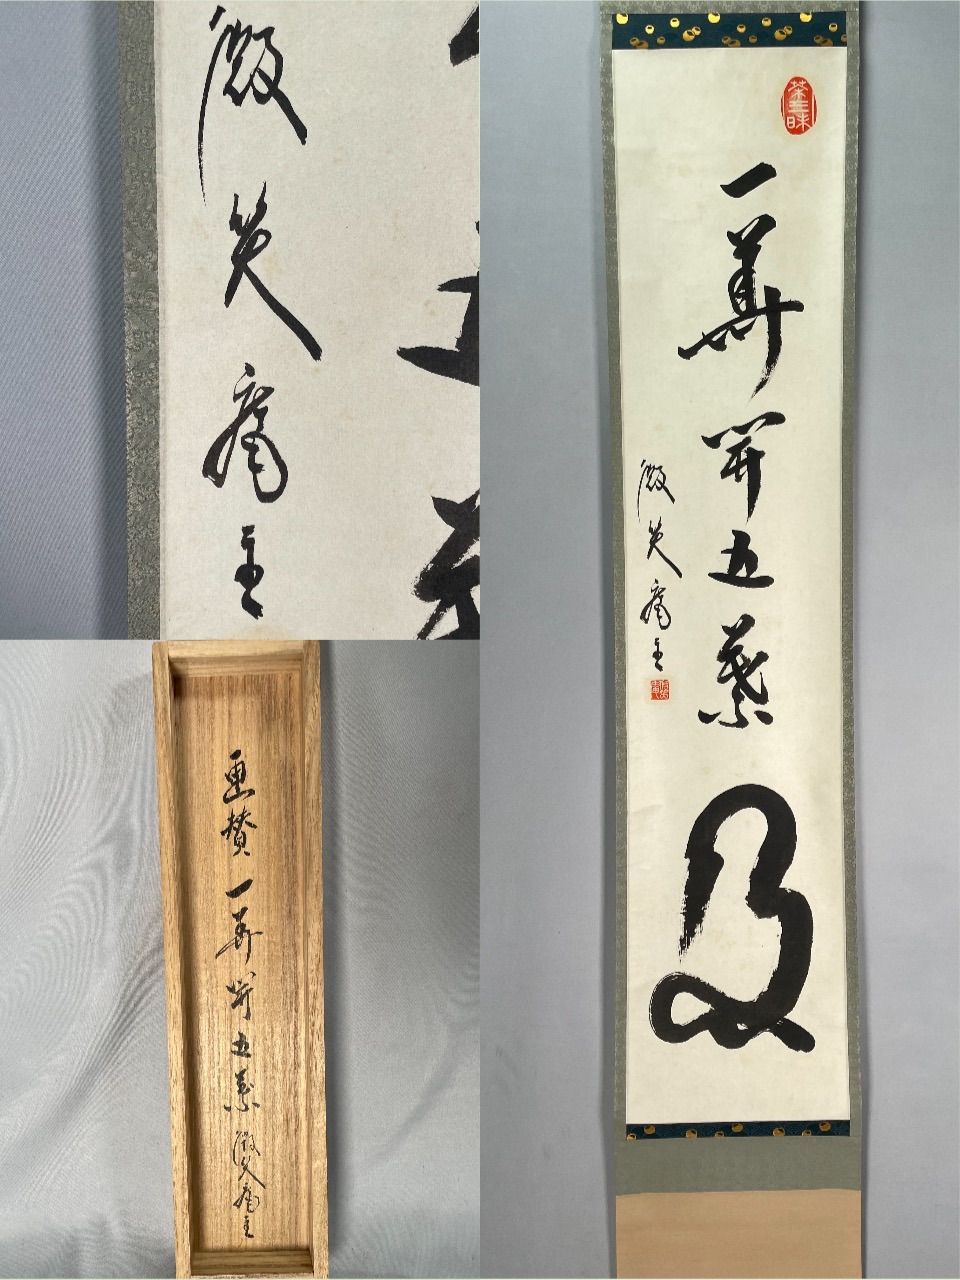 微笑庵主
画賛 一華開五葉 微笑庵主
茶三昧
一華開五葉
微笑庵主